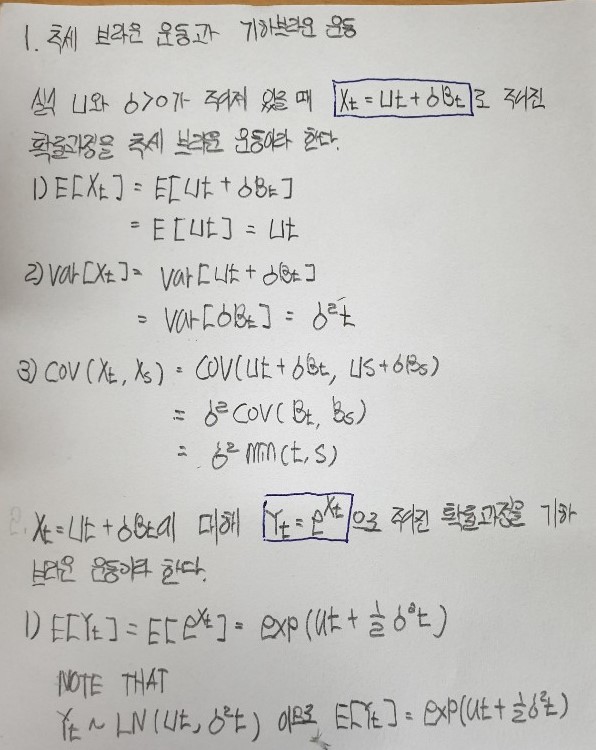 1. 추세 브라운 운동과 기하브라운 운동
실식 μ와 σ>0가 주어져 있을 때 Xt = μt + σBt로 주어진
확률과정을 추세 브라운 운동이라 한다.
1) E[Xt] = E[μt + σBt]
= E[μt] = μt
2) Var[Xt] = Var[μt + σBt]
= Var[σBt] = σ²t
3) COV(Xt, Xs) = COV(μt + σBt, μs + σBs)
= σ² COV(Bt, Bs)
= σ² min(t, s)
Xt = μt + σBt에 대해 Yt = e^Xt 으로 주어진 확률과정을 기하
브라운 운동이라 한다.
1) E[Yt] = E[e^Xt] = exp(μt + ½σ²t)
NOTE THAT
Yt ~ LN(μt, σ²t) 이므로 E[Yt] = exp(μt + ½σ²t)